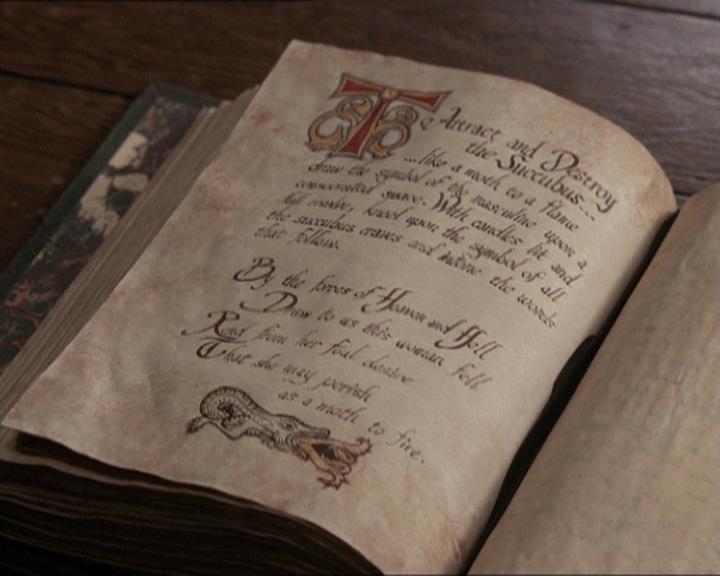 To Attract and Destroy
the Succubus...
...like a moth to a flame
draw the symbol of the masculine upon a
consecrated space. With candles lit and
full reader, kneel upon the symbol of all
the succubus craves and intone the words
that follow.
By the forces of Heaven and Hell
Draw to us this woman fell
Rend from her foul desire
That she may perish
as a moth to fire.